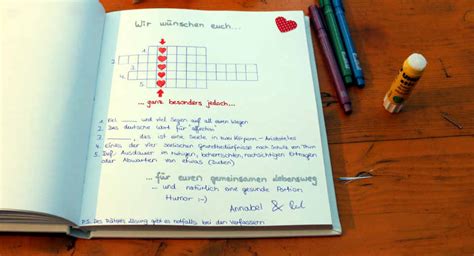 Wir wünschen euch...
1.
2.
3.
4.
5.
... ganz besonders jedoch...
1. Viel ______ und viel Segen auf all euren Wegen
2. Das deutsche Wort für "affectus"
3. ______, das ist eine Seele in zwei Körpern - Aristoteles
4. Eines der vier seelischen Grundbedürfnisse nach Schulz von Thun
5. Inf. Ausdauer im ruhigen, beherrschten, nachsichtigen Ertragen
oder Abwarten von etwas (Duden)
...für euren gemeinsamen Lebensweg
... und natürlich eine gesunde Portion
Humor :-)
Annabel &
P.S. Des Rätsels Lösung gibt es notfalls bei den Verfassern